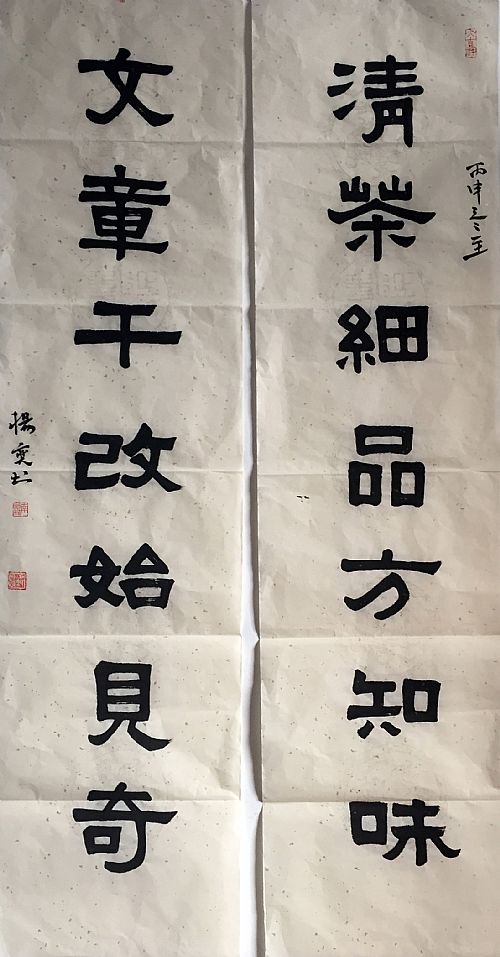 丙申
清茶細品方知味
文章千改始見奇
楊书